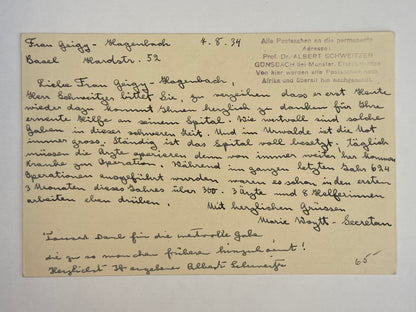 Frau Geigy-Hagenbach 4.8.34
Basel Hardstr. 52
Alle Postsachen an die permanente
Adresse:
Prof. Dr. ALBERT SCHWEITZER
GÜNSBACH bei Münster, Elsass
Von hier werden alle Postsachen nach
Afrika und überall hin nachgesandt.
Liebe Frau Geigy-Hagenbach,
Herr Schweitzer bittet Sie, zu verzeihen dass er erst heute
wieder dazu kommt Ihnen herzlich zu danken für Ihre
erneute Hilfe an seinem Spital. Wie wertvoll sind solche
Gaben in dieser schweren Zeit. Und im Urwalde ist die Not
immer gross. Ständig ist das Spital voll besetzt. Täglich
müssen die Ärzte operieren denn von immer weiter her kommen
Kranke zur Operation. Während im ganzen letzten Jahr 624
Operationen ausgeführt wurden, waren es schon in den ersten
3 Monaten dieses Jahres über 300. 3 Ärzte und 8 Helferinnen
arbeiten eben drüben. Mit herzlichen Grüssen
Marie Woytt-Secretan
Tausend Dank für die wertvolle Gabe
die zu so mancher früheren hinzukommt!
Herzlichst Ihr ergebener Albert Schweitzer
65-